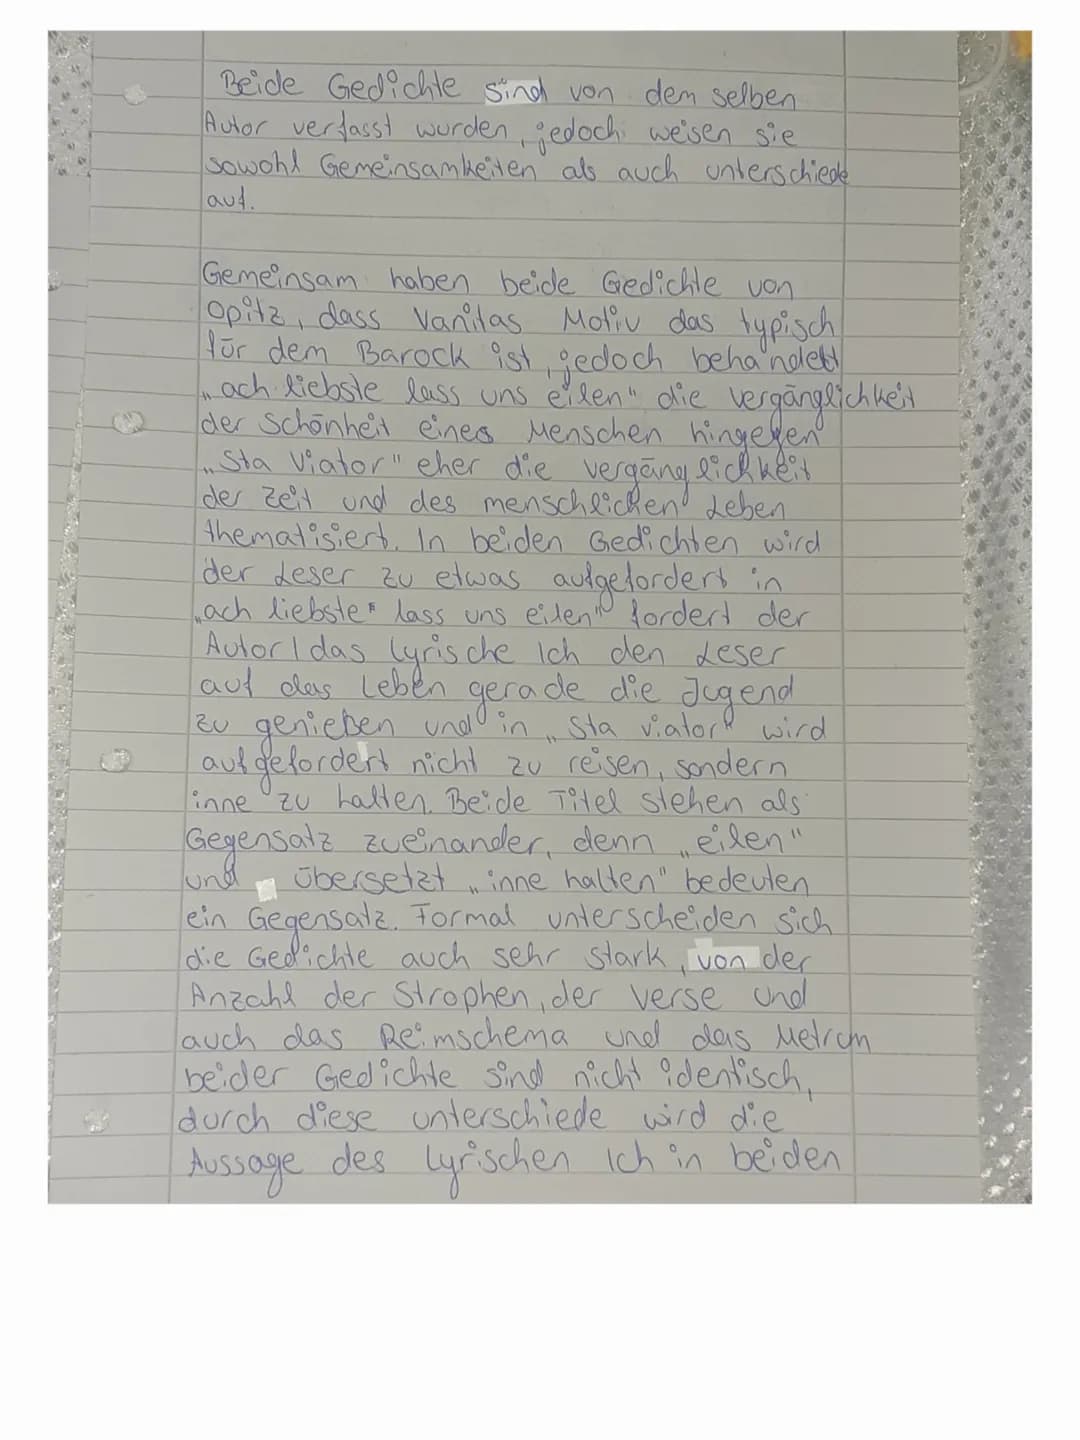 Beide Gedichte sind von dem selben
Autor verfasst wurden, jedoch weisen sie
sowohl Gemeinsamkeiten als auch unterschiede
auf.
Gemeinsam haben beide Gedichte von
Opitz, dass Vanitas Motiv das typisch
für dem Barock ist, jedoch behandelt
„ach liebste lass uns eilen" die vergänglichkeit
der Schönheit eines Menschen hingegen
„Sta Viator" eher die vergänglichkeit
der Zeit und des menschlichen Leben
thematisiert. In beiden Gedichten wird
der Leser zu etwas aufgefordert in
„ach liebste lass uns eilen" fordert der
Autor/das lyrische Ich den Leser
auf das Leben gerade die Jugend
zu genießen und in „Sta viator" wird
aufgefordert nicht zu reisen, sondern
inne zu halten. Beide Titel stehen als
Gegensatz zueinander, denn „eilen"
und übersetzt „inne halten" bedeuten
ein Gegensatz. Formal unterscheiden sich
die Gedichte auch sehr stark, von der
Anzahl der Strophen, der Verse und
auch das Reimschema und das Metrum
beider Gedichte sind nicht identisch,
durch diese unterschiede wird die
Aussage des Lyrischen Ich in beiden